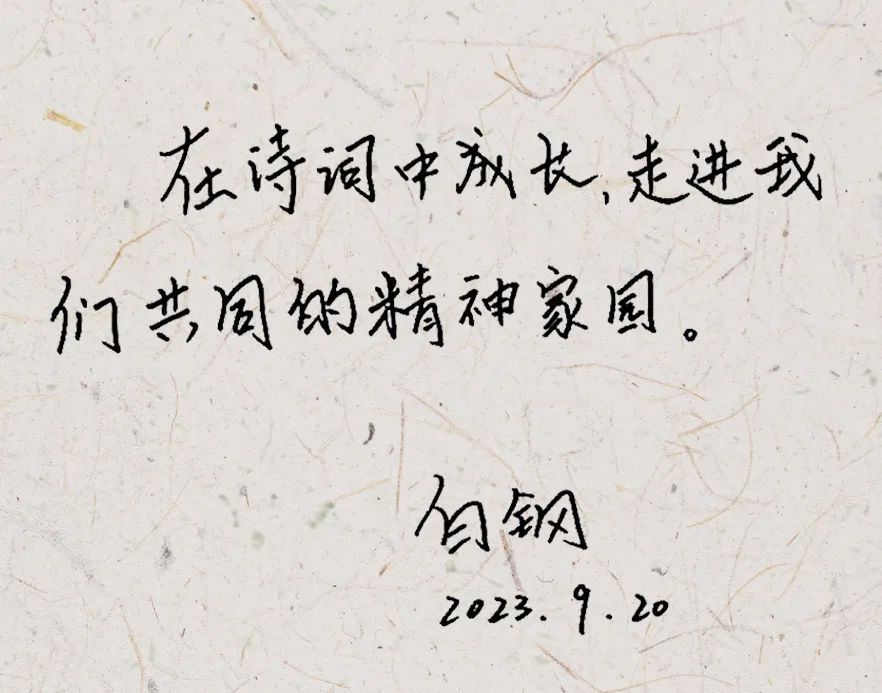 在诗词中成长,走进我
们共同的精神家园。
白钢
2023.9.20